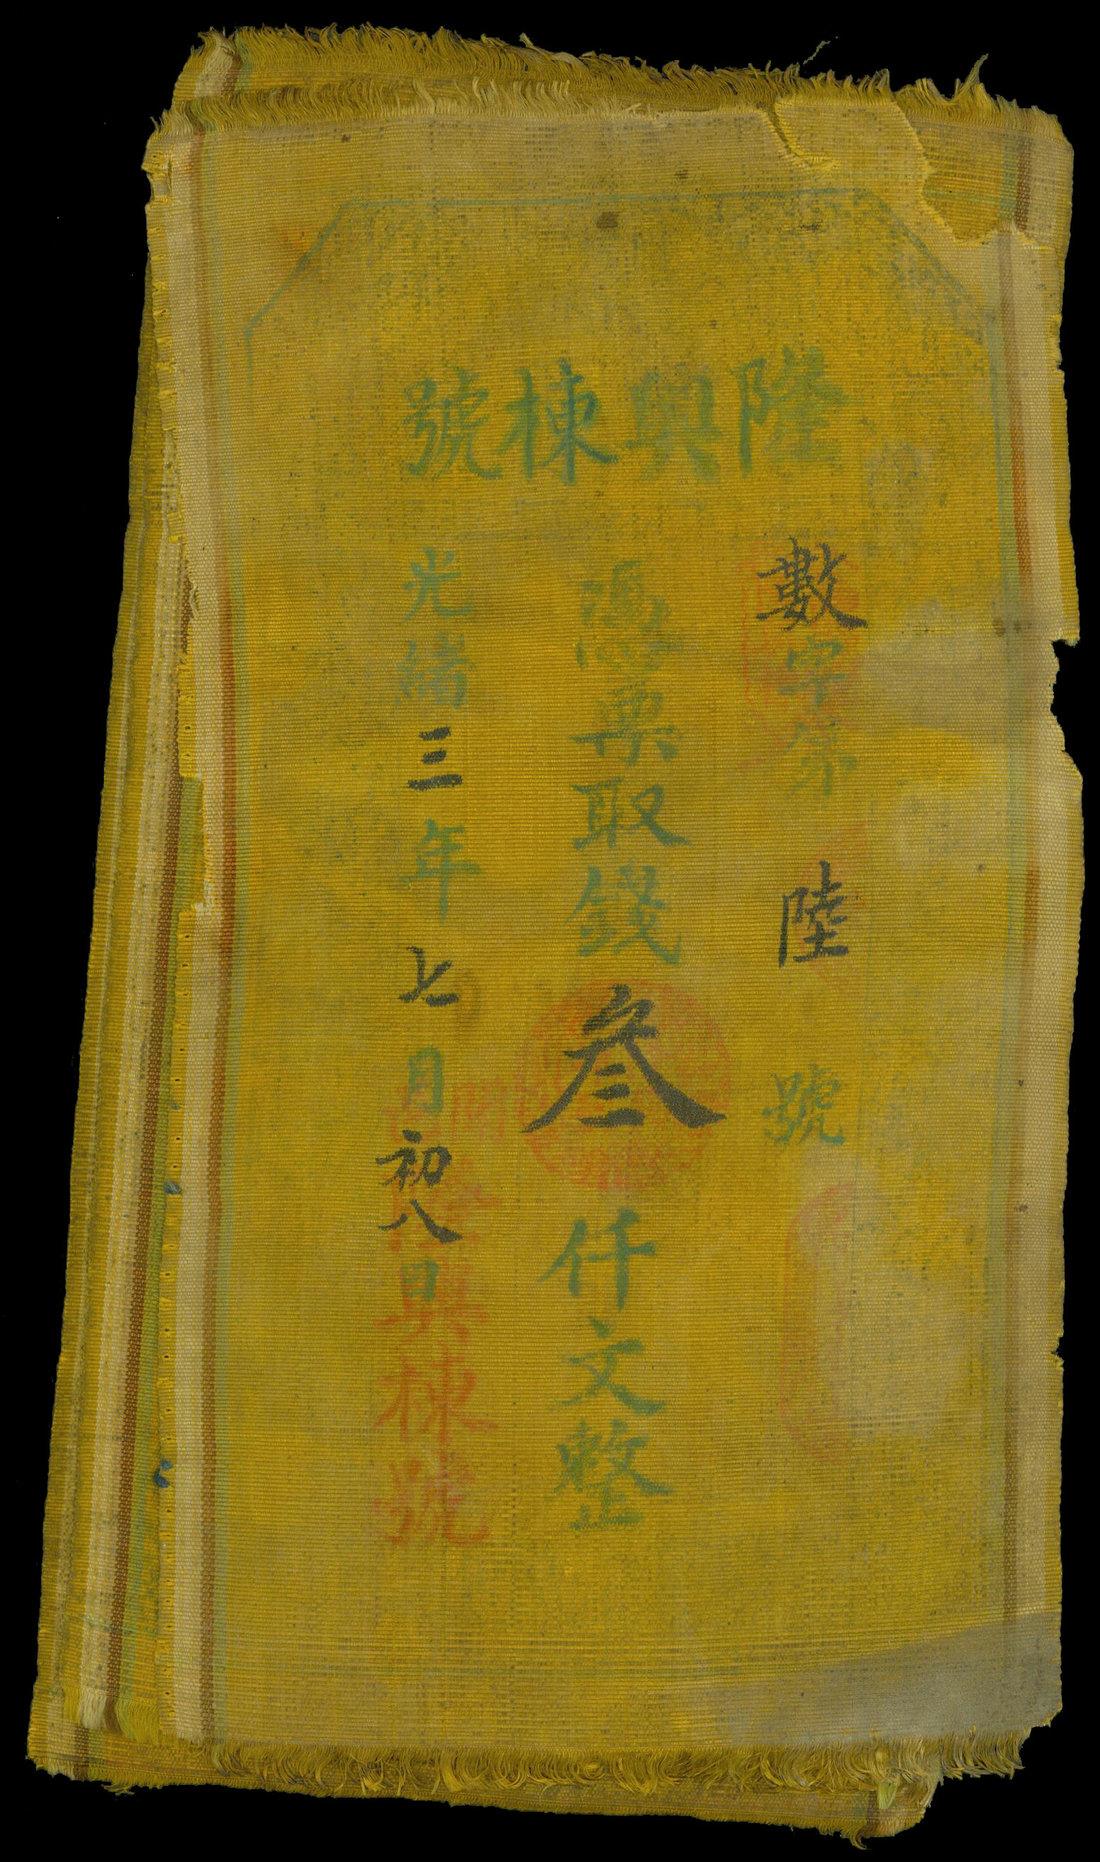 隆興棟號
數字第陸號
憑票取錢叁仟文整
光緒三年七月初八日
隆興棟號